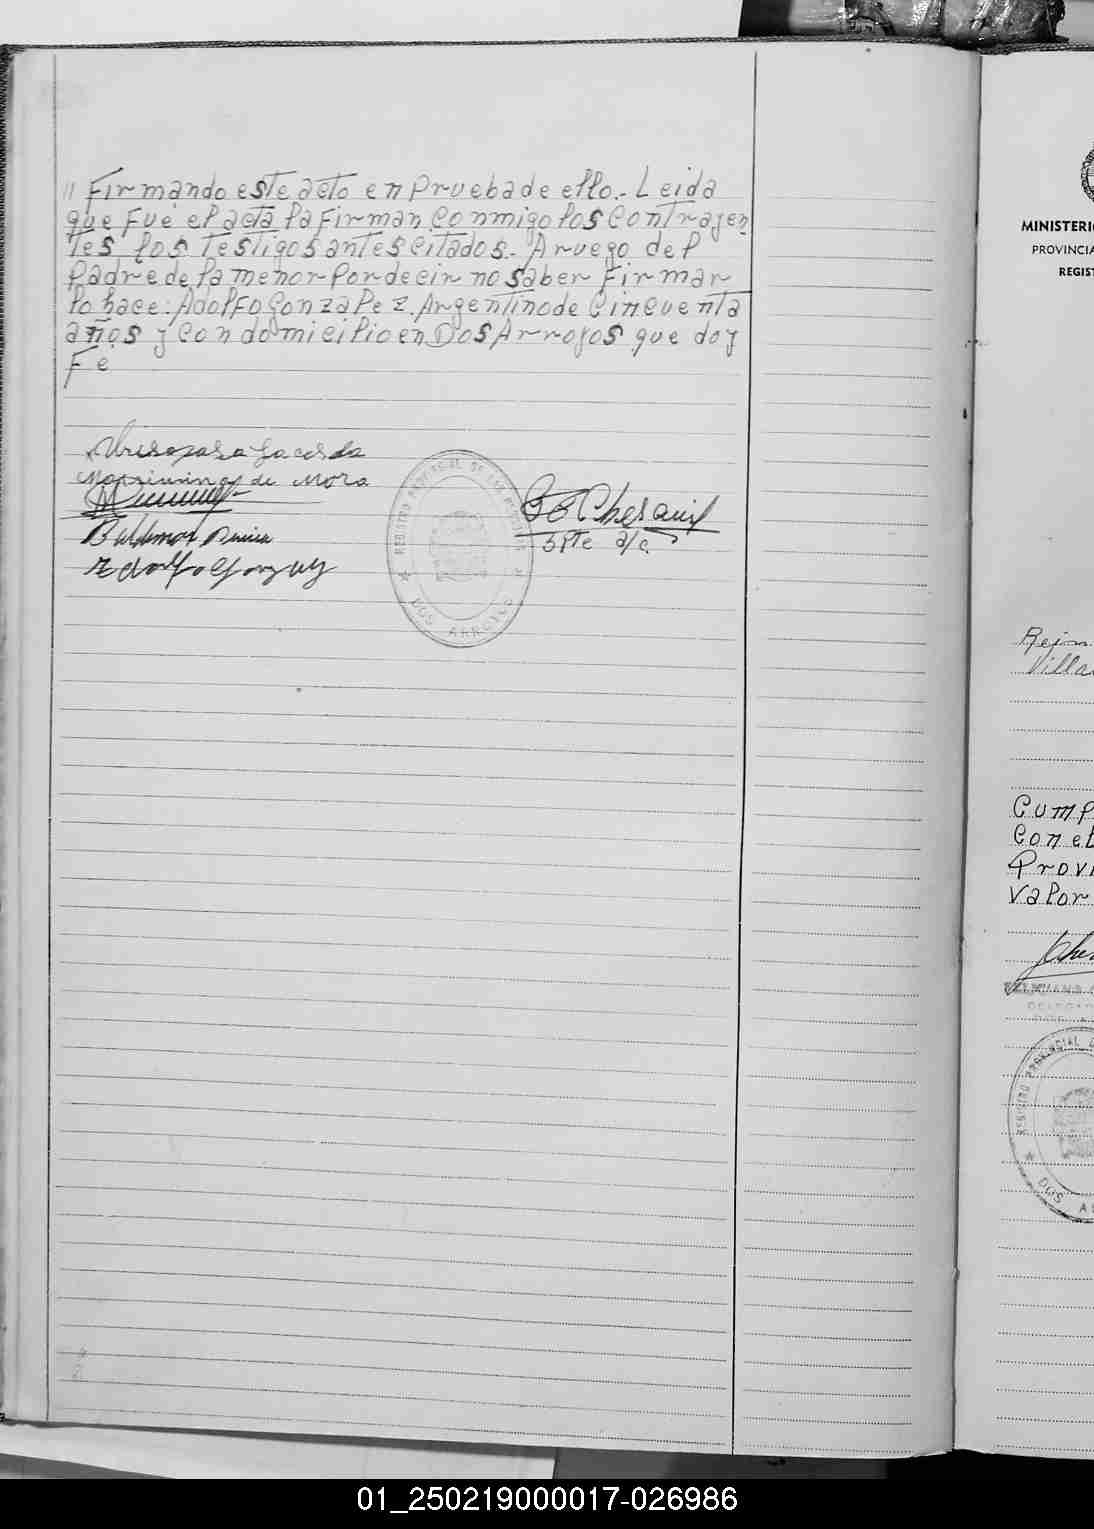 // Firmando este acto en prueba de ello.- Leida
que fué el acta la firman conmigo los contrayen
tes los testigos antes citados.- A ruego del
padre de la menor por decir no saber firmar
lo hace: Adolfo Gonzalez. Argentino de cincuenta
años y con domicilio en Dos Arroyos que doy
Fé
de Mora
Ste a/c.
REGISTRO PROVINCIAL DE LAS PERSONAS
DOS ARROYOS
MINISTERI
PROVINCIA
REGIST
Rejin
Villa
Cump
Con el
Provi
Valor
DELEGA
REGISTRO PROVINCIAL D
DOS A
01_250219000017-026986